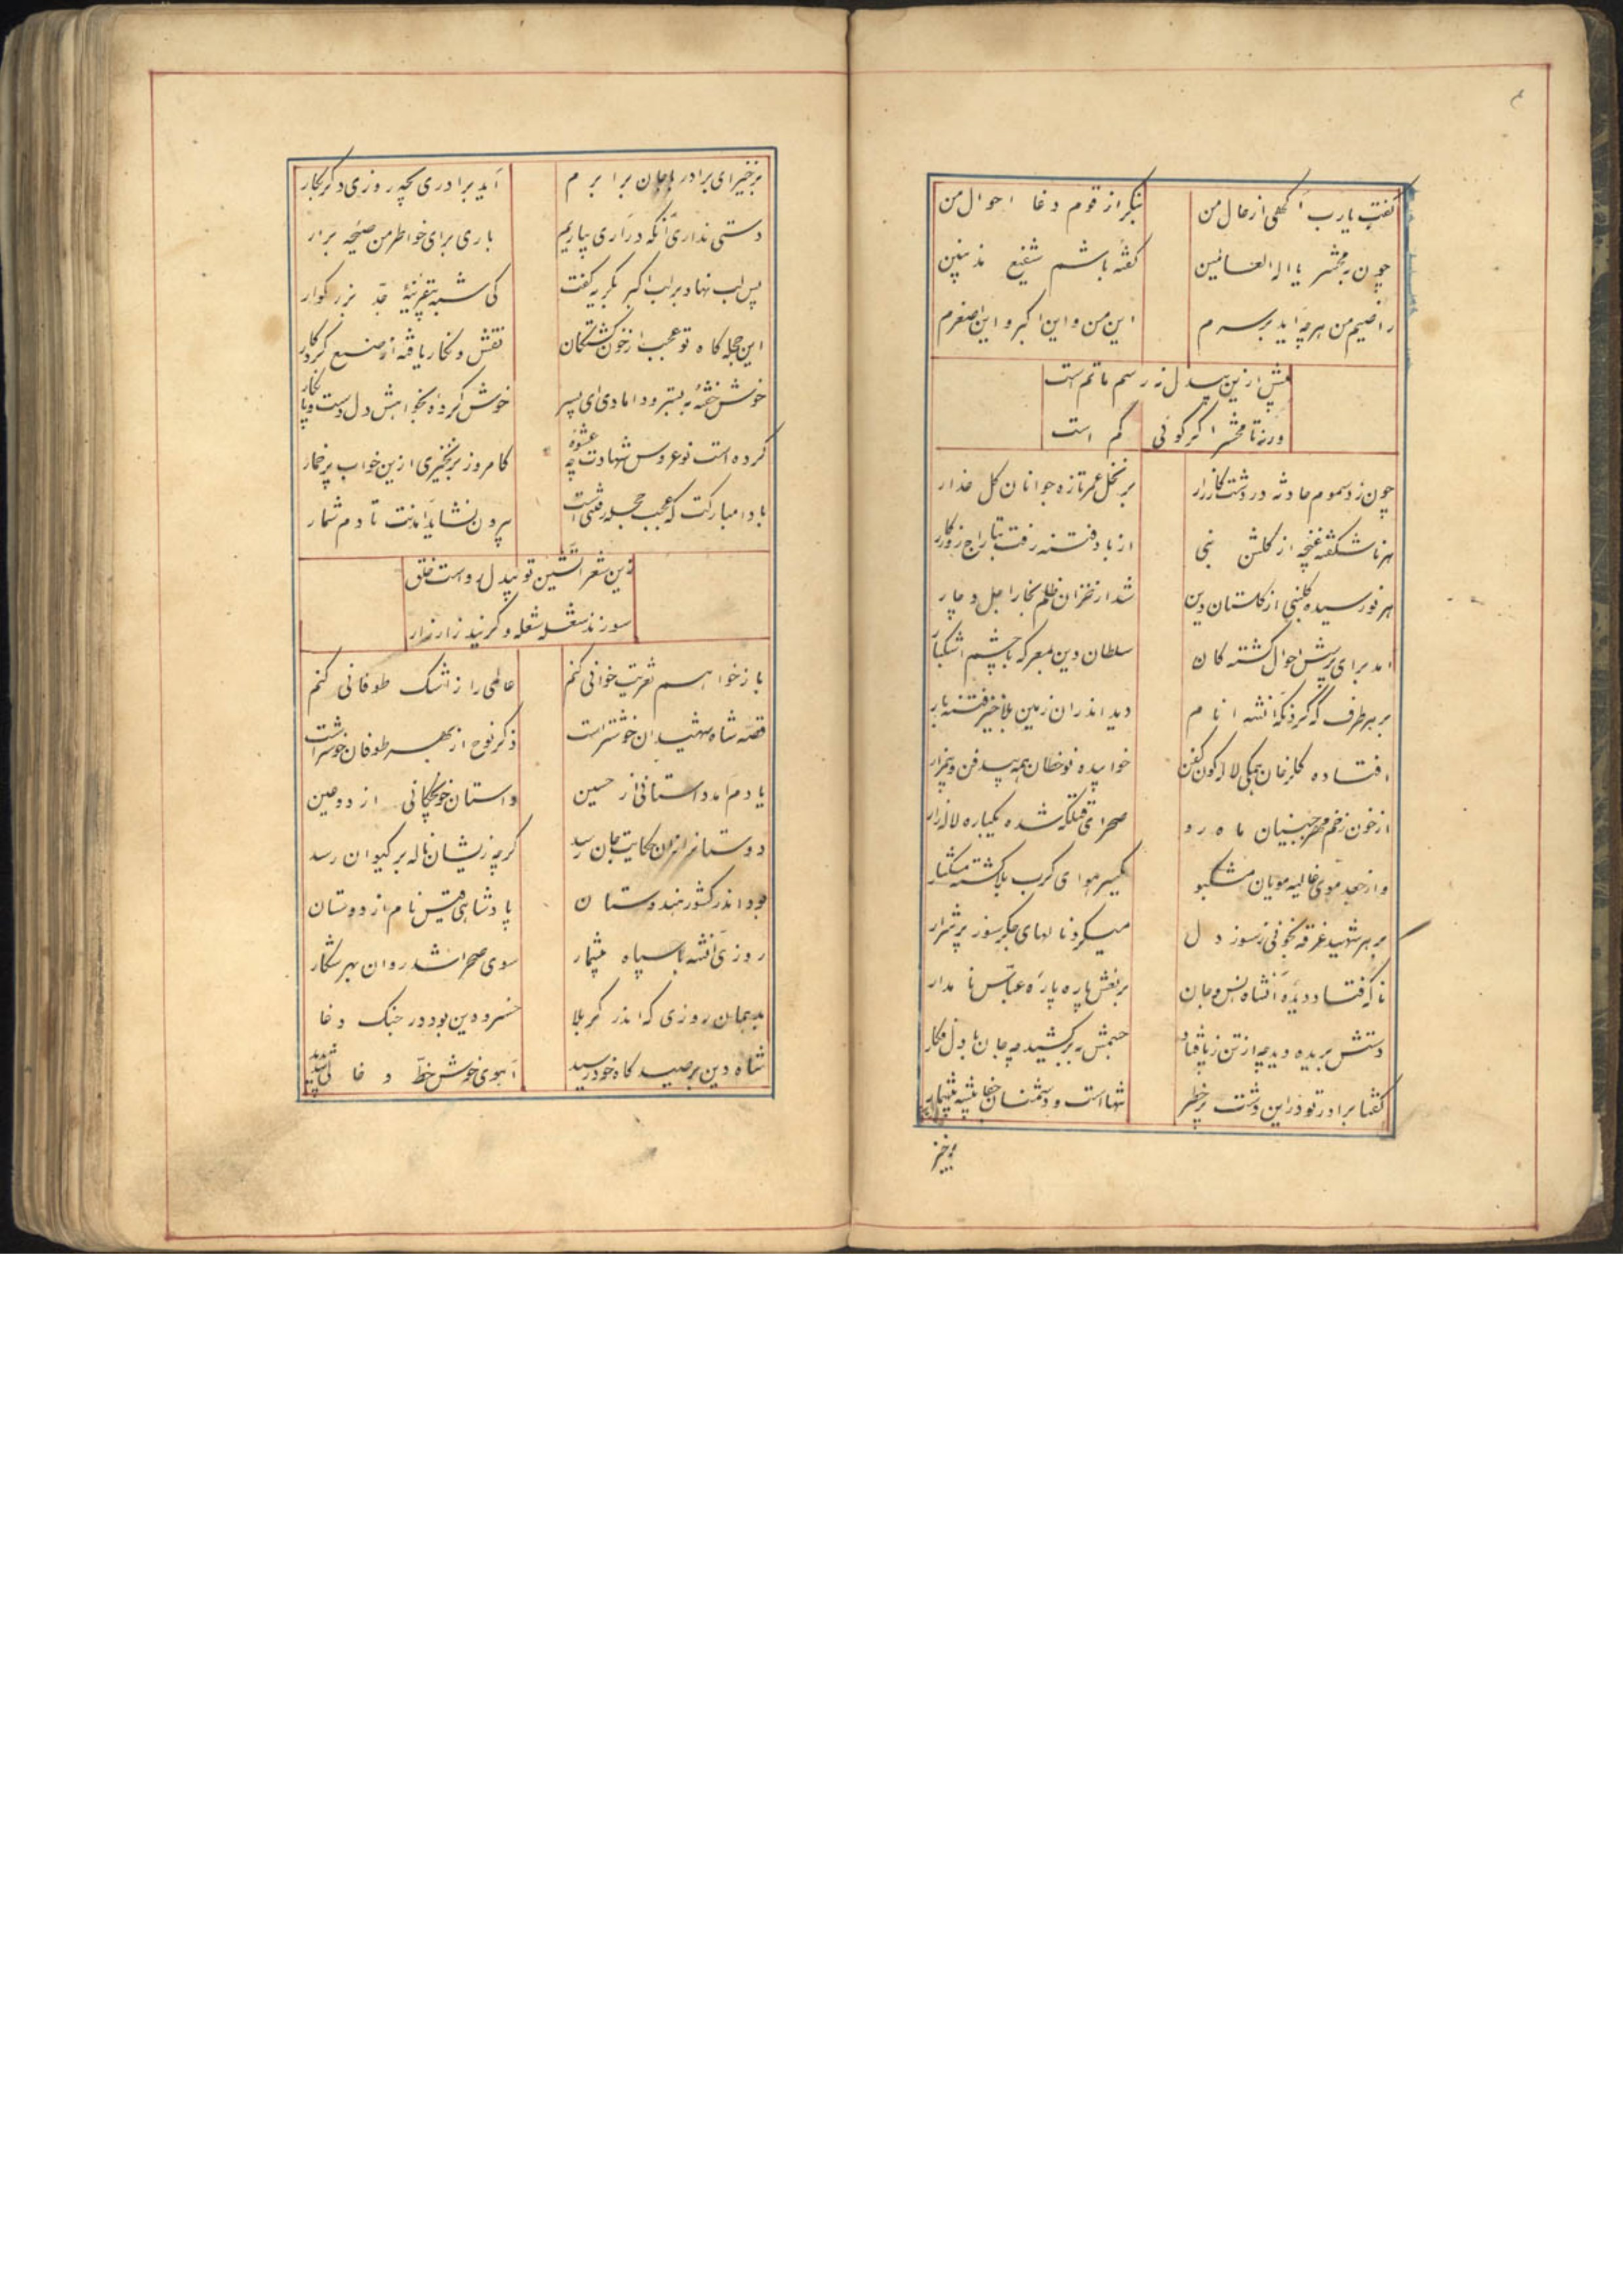 گفت یارب آگهی از حال من	بنگر از قوم دغا احوال من
چون به محشر یا اله العالمین	گفته باشم شفیع مذنبین
راضیم من هرچه آید بر سرم	این من و این اکبر و این اصغرم
بیش ازین بیدل نه رسم ماتم است
ورنه تا محشر اگر گوئی کم است
چون زد سموم حادثه در دشت کارزار	بر نخل عمر تازه جوانان گل عذار
هر ناشکفته غنچه از گلشن نبی	از باد فتنه رفت بتاراج روزگار
هر نورسیده گلبنی از گلستان دین	شد از خزان ظلم بخار اجل دچار
امد برای پرسش احوال کشته کان	سلطان دین بمعرکه با چشم اشکبار
بر هر طرف که کرد نگه آنشه انام	دید اندران زمین بلاخیز فتنه بار
افتاده گلرخان همگی لاله گون کفن	خوابیده نوخطان همه بیدفن و بیمزار
از خون زخم مهر جبینان ماه رو	صحرای قتلگه شده یکباره لاله زار
واز جعد موی غالیه مویان مشکبو	یکسر هوای کرب بلا گشته مشکبار
بر هر شهید غرقه بخونی ز سوز دل	میکرد نالهای جگرسوز پرشرار
ناگه فتاد دیده آنشاه انس و جان	بر نعش پاره پاره عباس نامدار
دستش بریده دید چه از تن ز پا فتاد	جسمش به بر کشید چه جان با دل فکار
گفتا برادر تو در این دشت پر خطر	تنها است و دشمنان جفا پیشه بیشمار
برخیز
برخیز ای برادر با جان برابرم	آید برادری بچه روزی دگر بکار
دستی نداری آنکه درآری بیاریم	باری برای خواطر من صیحه برار
پس لب نهاد بر لب اکبر بگریه گفت	کی شبه بیقرینهٔ جد بزرگوار
این حجله گاه تو عجب از خون کشتگان	نقش و نگار یافته از صنع کردگار
خوش خفته به بستر دامادی ای پسر	خوش کرده بخواهش دل دست و پا نگار
کرده است نوعروس شهادت چه عشوهٔ	کامروز برنخیزی ازین خواب پرخمار
بادا مبارکت که عجب حجله رفتی است	بیرون نشاید آمدنت تا دم شمار
زین شعر آتشین تو بیدل رواست خلق
سوزند شعله شعله و گریند زار زار
باز خواهم تعزیت خوانی کنم	عالمی را ز اشک طوفانی کنم
قصه شاه شهیدان خوشتر است	ذکر نوح از بهر طوفان خوشتر است
یادم آمد داستانی از حسین	داستان خونچکانی از دو عین
دوستانرا زان حکایت جان رسد	گرچه زیشان ناله بر کیوان رسد
بود اندر کشور هندوستان	پادشاهی قیس نام از دوستان
روزی آنشه با سپاه بیشمار	سوی صحرا شد روان بهر شکار
بد همان روزی که اندر کربلا	خسرو دین بود در جنگ دغا
شاه دین بر صید گاه خود رسید	آهوی خوش خط و خالی شد پدید